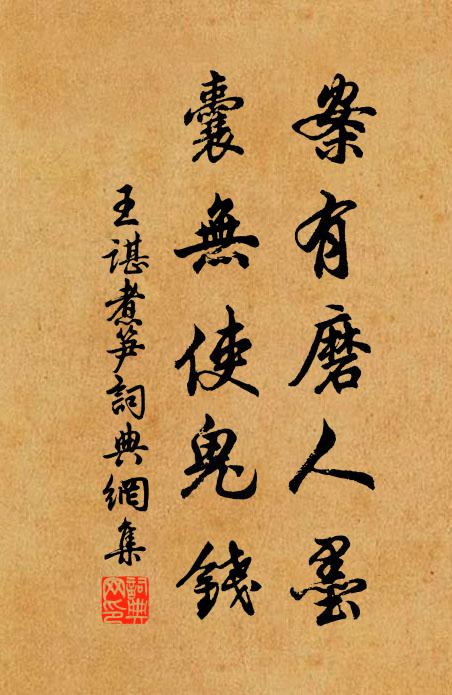 案有磨人墨
囊無使鬼錢
王諶煮笋詞典網集
詞典網印